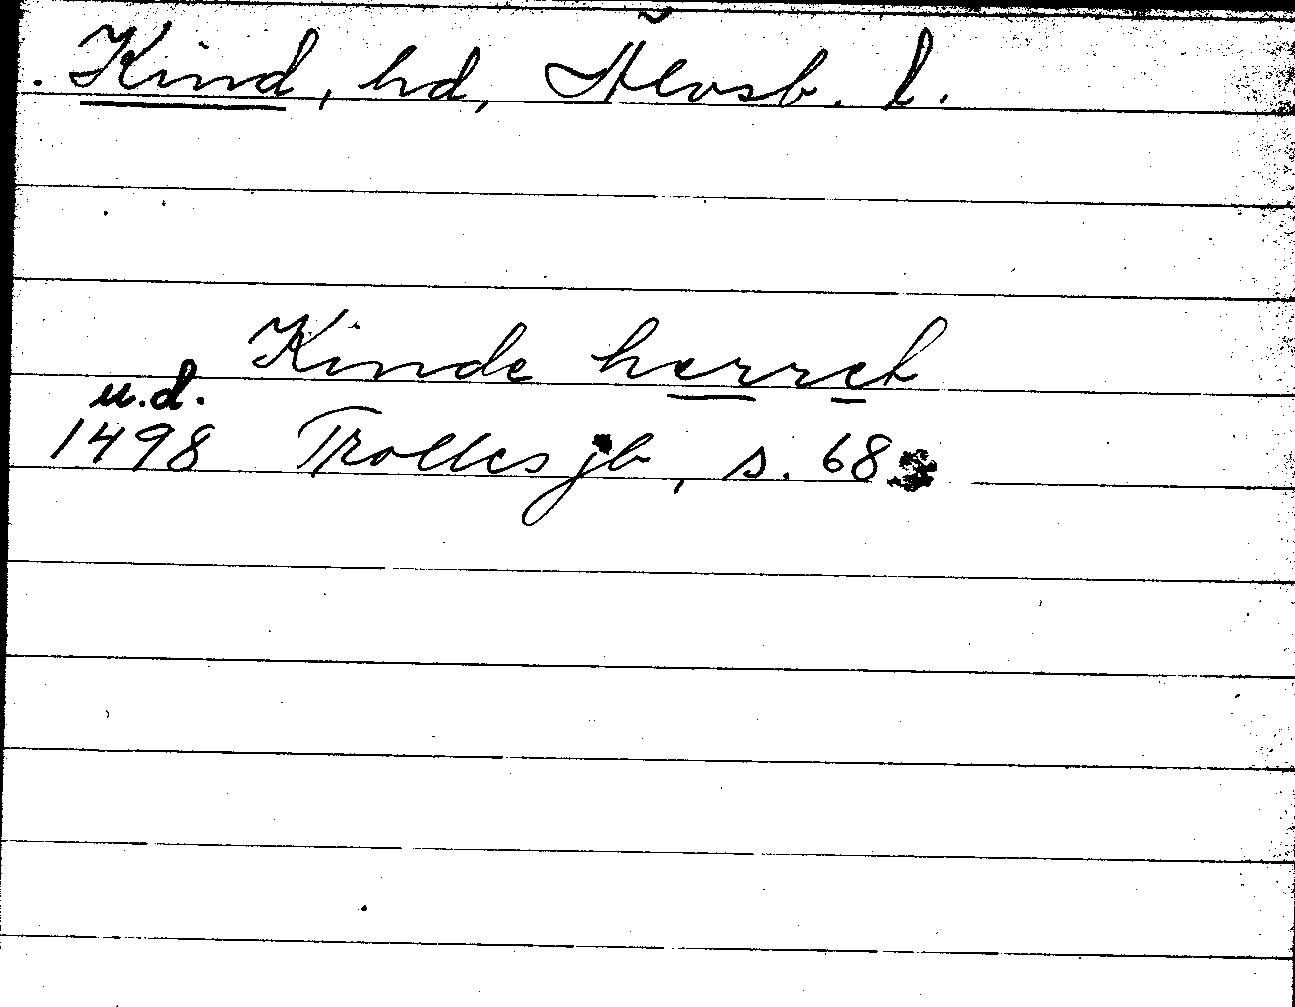 Kind, hd, Älvsb. l.
Kinde herret
u.d.
1498 Trolles jb, s. 68